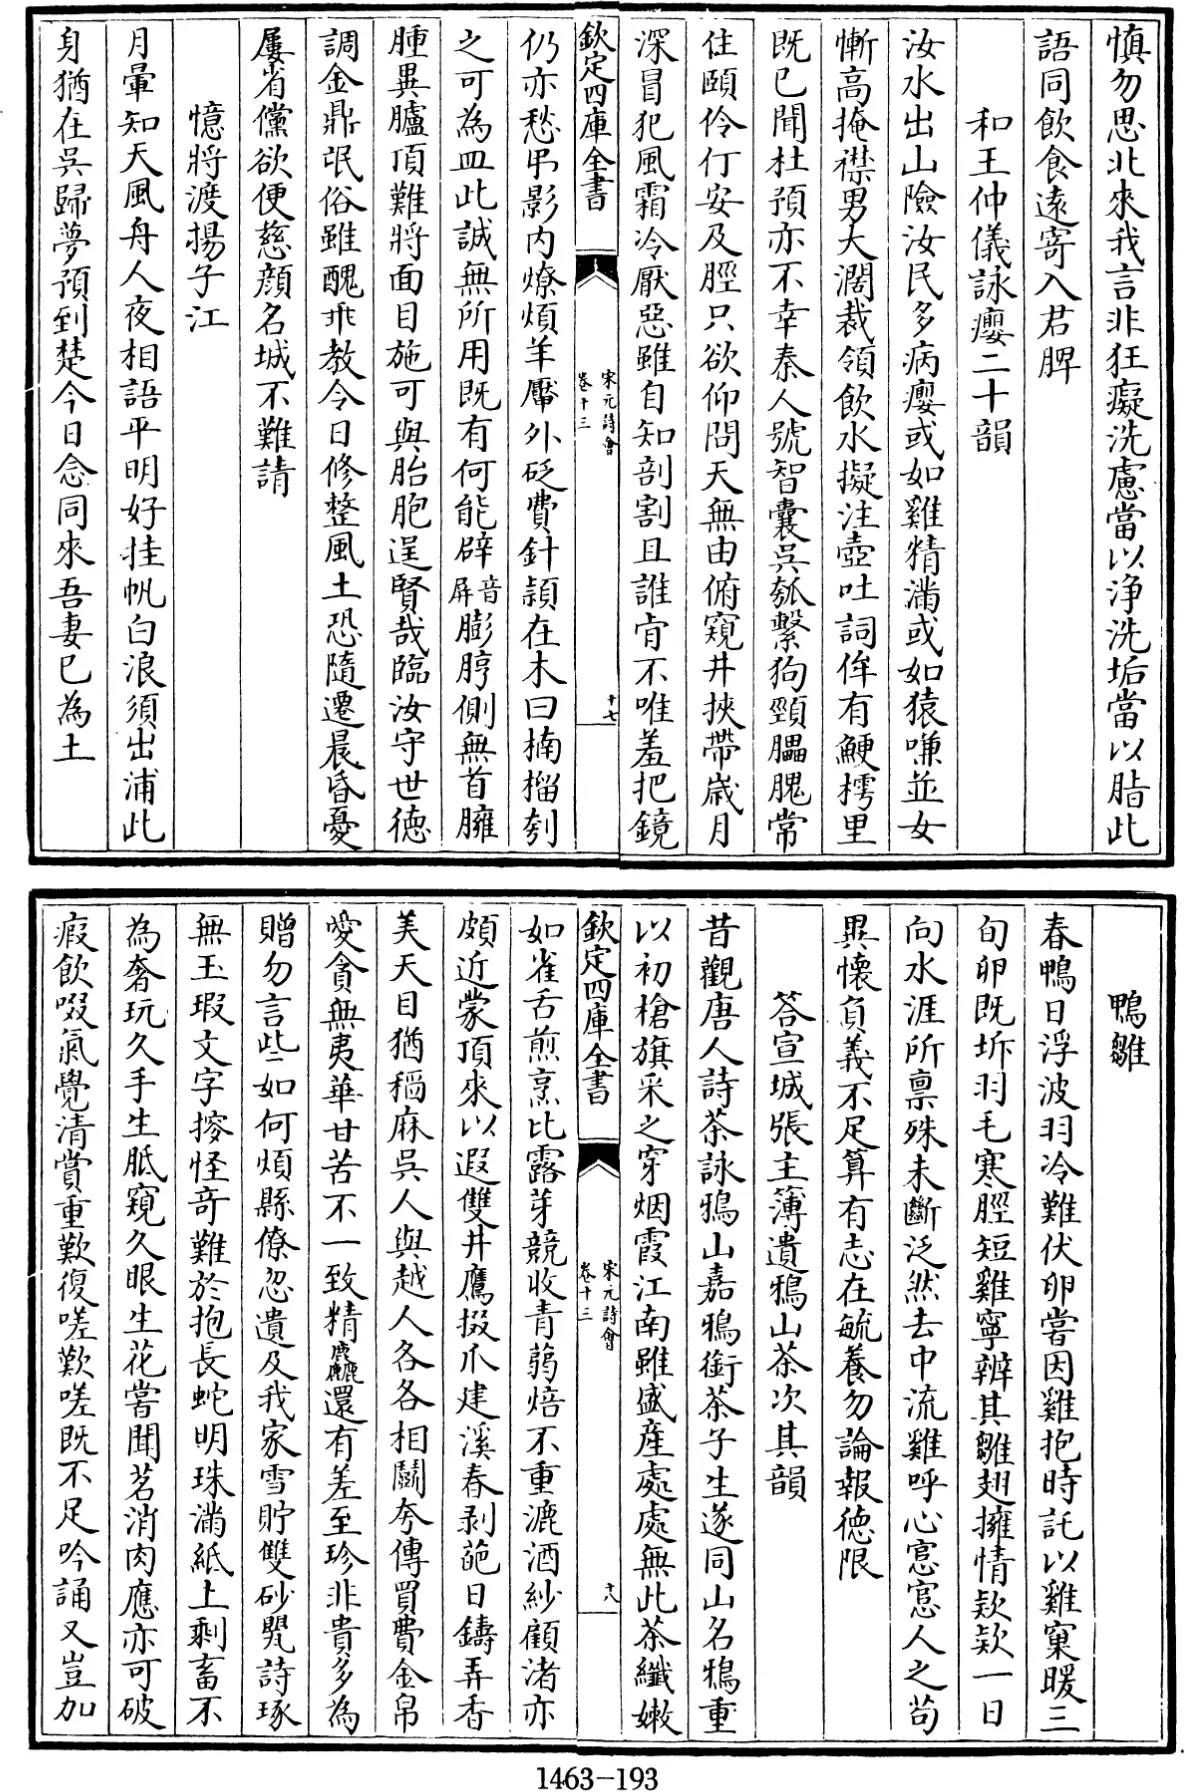 慎勿思北來我言非狂癡洗慮當以浄洗垢當以脂此
語同飲食遠寄入君脾
和王仲儀詠癭二十韻
汝水出山險汝民多病癭或如雞精滿或如猿嗛並女
慚高掩襟男大濶裁領飲水擬注壺吐詞侔有鯁樗里
既已聞杜預亦不幸秦人號智囊呉瓠繫狗頸腽腲常
住頤伶仃安及脛只欲仰問天無由俯窺井挾帶歲月
深冒犯風霜冷厭惡雖自知剖割且誰肯不唯羞把鏡
欽定四庫全書
宋元詩會
卷十三
十七
仍亦愁弔影内燎煩羊靨外砭費針頴在木曰楠榴刳
之可為皿此誠無所用既有何能辟音屏膨脝側無首臃
腫異臚頂難將面目施可與胎胞逞賢哉臨汝守世徳
調金鼎氓俗雖醜乖教令日修整風土恐隨遷晨昏憂
屢省儻欲便慈顔名城不難請
憶將渡揚子江
月暈知天風舟人夜相語平明好挂帆白浪須出浦此
身猶在呉歸夢預到楚今日念同來吾妻已為土
鴨雛
春鴨日浮波羽冷難伏卵嘗因雞抱時託以雞窠暖三
旬卵既坼羽毛寒脛短雞寧辨其雛翅擁情欵欵一日
向水涯所禀殊未斷泛然去中流雞呼心悹悹人之苟
異懷負義不足算有志在毓養勿論報徳限
答宣城張主簿遺鴉山茶次其韻
昔觀唐人詩茶詠鴉山嘉鴉銜茶子生遂同山名鴉重
以初槍旗采之穿烟霞江南雖盛産處處無此茶纖嫩
欽定四庫全書
宋元詩會
卷十三
十八
如雀舌煎烹比露芽競收青蒻焙不重漉酒紗顧渚亦
頗近蒙頂來以遐雙井鷹掇爪建溪春剥葩日鑄弄香
美天目猶稲麻呉人與越人各各相鬭夸傳買費金帛
愛貪無夷華甘苦不一致精麤還有差至珍非貴多為
贈勿言些如何煩縣僚忽遺及我家雪貯雙砂甖詩琢
無玉瑕文字搜怪竒難於抱長蛇明珠滿紙上剩畜不
為奢玩久手生胝窺久眼生花嘗聞茗消肉應亦可破
瘕飲啜氣覺清賞重歎復嗟歎嗟既不足吟誦又豈加
1463-193